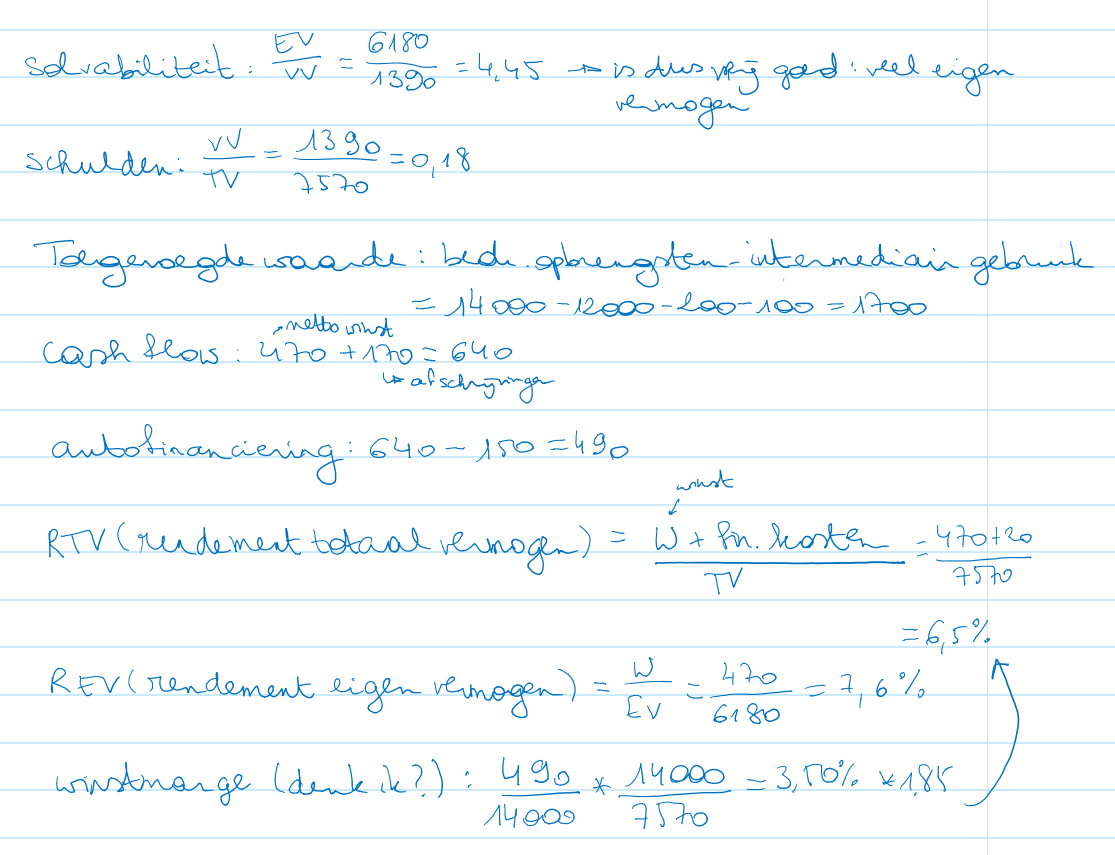 solvabiliteit: EV/VV = 6180/1390 = 4,45 → is dus vrij goed: veel eigen
vermogen
schulden: VV/TV = 1390/7570 = 0,18
Toegevoegde waarde: bedr. opbrengsten - intermediair gebruik
= 14000 - 12000 - 200 - 100 = 1700
netto winst
cash flow: 470 + 170 = 640
↳ afschrijvingen
autofinanciering: 640 - 150 = 490
winst
RTV (rendement totaal vermogen) = W + fin. kosten/TV = 470+20/7570
= 6,5%
REV (rendement eigen vermogen) = W/EV = 470/6180 = 7,6%
winstmarge (denk ik?): 490/14000 * 14000/7570 = 3,50% * 1,85